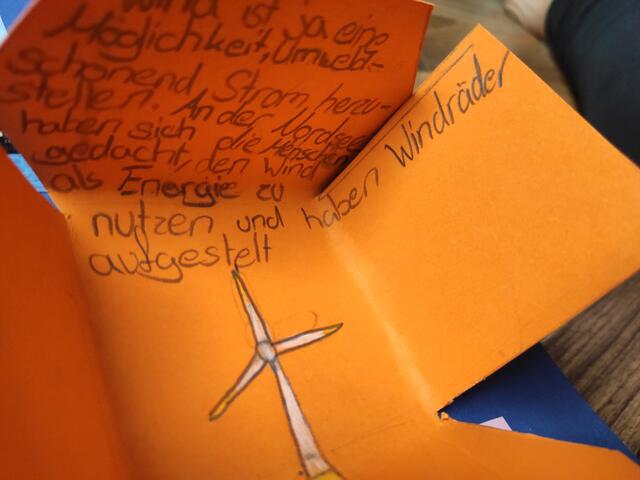 Wind ist ja eine
Möglichkeit, Umwelt-
schonend Strom herzu-
stellen. An der Nordsee
haben sich die Menschen
gedacht, den Wind
als Energie zu
nutzen und haben Windräder
aufgestelt